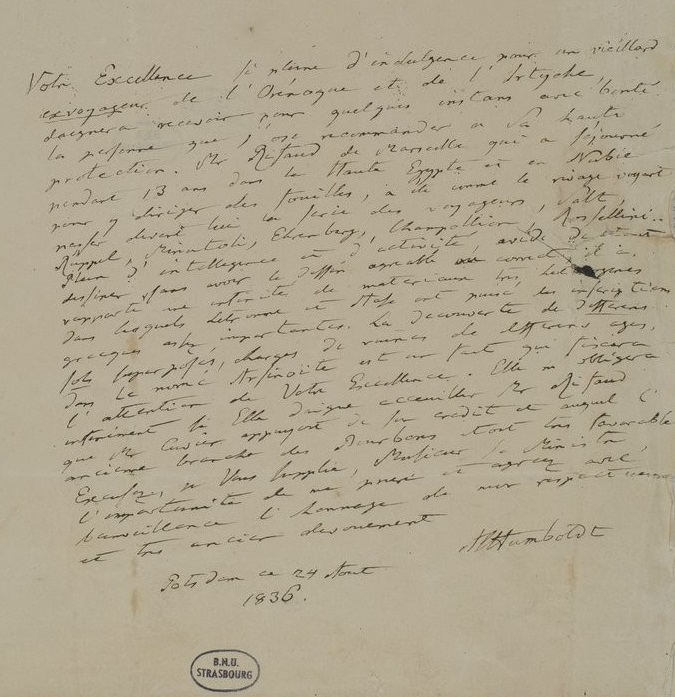 Votre Excellence si pleine d'indulgence pour un vieillard
exvoyageur de l'Orénoque et de l'Irtyche,
daignera recevoir pour quelques instans avec bonté
la personne que j'ose recommander à Sa haute
protection. Mr Rifaud de Marseille qui a séjourné
pendant 13 ans dans la Haute Egypte et en Nubie
pour y diriger des fouilles, a de comme le rivage voyait
passer devant lui la serie des voyageurs, Salt,
Ruppel, Minutoli, Ehrenberg, Champollion, Rosellini..
Plein d'intelligence et d'activité, avide de
dessiner sans avoir le dessin agreable correct, il a
rapporté une infinité de materiaux très
dans lesquels Letronne et Hase ont puisé des inscriptions
grecques assez importantes. La decouverte de differens
sols superposés, chargés de ruines de differens ages,
dans le nome Arsinoite est un fait qui fixera
l'attention de Votre Excellence. Elle m'obligera
infiniment si Elle daigne acceuillir Mr Rifaud
que Mr Cuvier appuyoit de son credit et auquel l'
ancienne branche des Bourbons étoit très favorable
Excusez, je Vous supplie, Monsieur le Ministre
l'importunité de ma priere et agréez avec
bienveillance l'hommage de mon respectueux
et très ancien devouement
AlHumboldt
Potsdam ce 24 Aout
1836.
B.N.U.
STRASBOURG